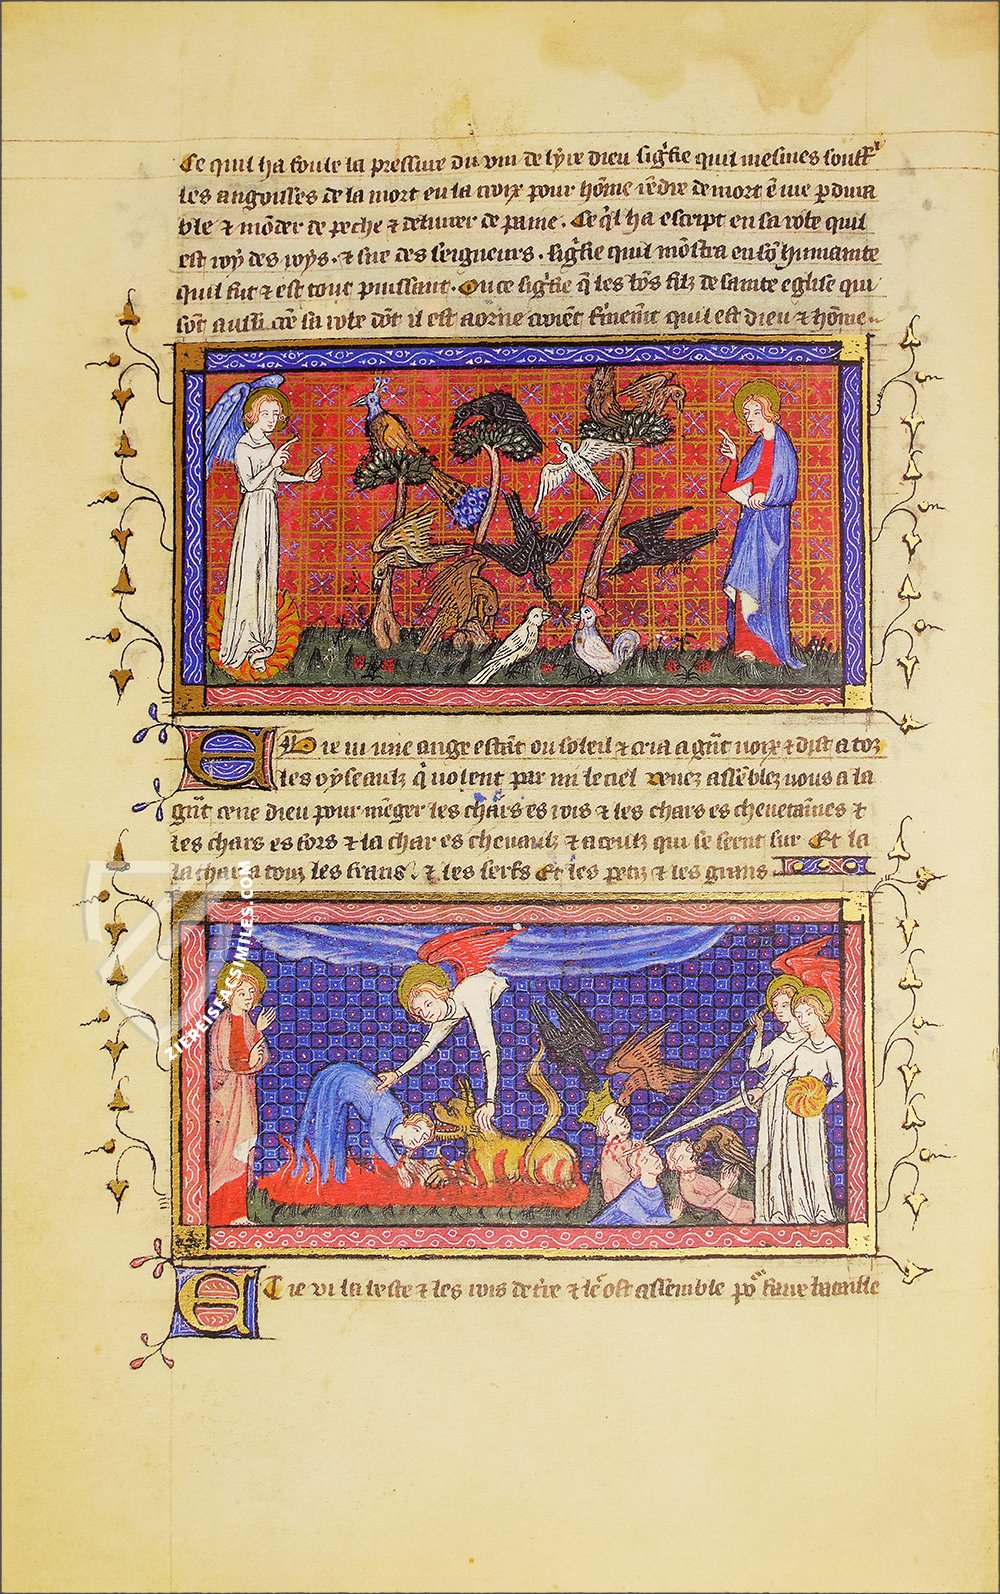 Ce quil ha foule la pressure du vin de lyre dieu sigfie quil mesmes souff'
les angousses de la mort en la croix pour hōme rēdre de mort ē vie pdura
ble ⁊ mōder de peche ⁊ deliurer de paine. Ce ql ha escript en sa robe quil
est roy des roys. ⁊ sire des seigneurs. sigfie quil mōstra en sō humanite
quil fut ⁊ est tout puissant. Ou ce sigfie q les bōs filz de sainte eglise qui
sōt aussi cōe sa robe dōt il est aorne croiēt finemt quil est dieu ⁊ hōme.
E Die ui une ange estāt ou soleil ⁊ cria a gāt uoix ⁊ dist a toz
les oyseaulz q uolent par mi le ciel venez assēblez uous a la
gāt cene dieu pour mēger les chars es rois ⁊ les chars es cheuetaines ⁊
les chars es fors ⁊ la char es cheuaulz ⁊ a ceulz qui se seent sur Et la
la char a touz les frans. ⁊ les serfs Et les petiz ⁊ les grans
E Tie vi la beste ⁊ les rois de tre ⁊ lr ost assemble po faire bataille
ZIEREISFACSIMILES.COM